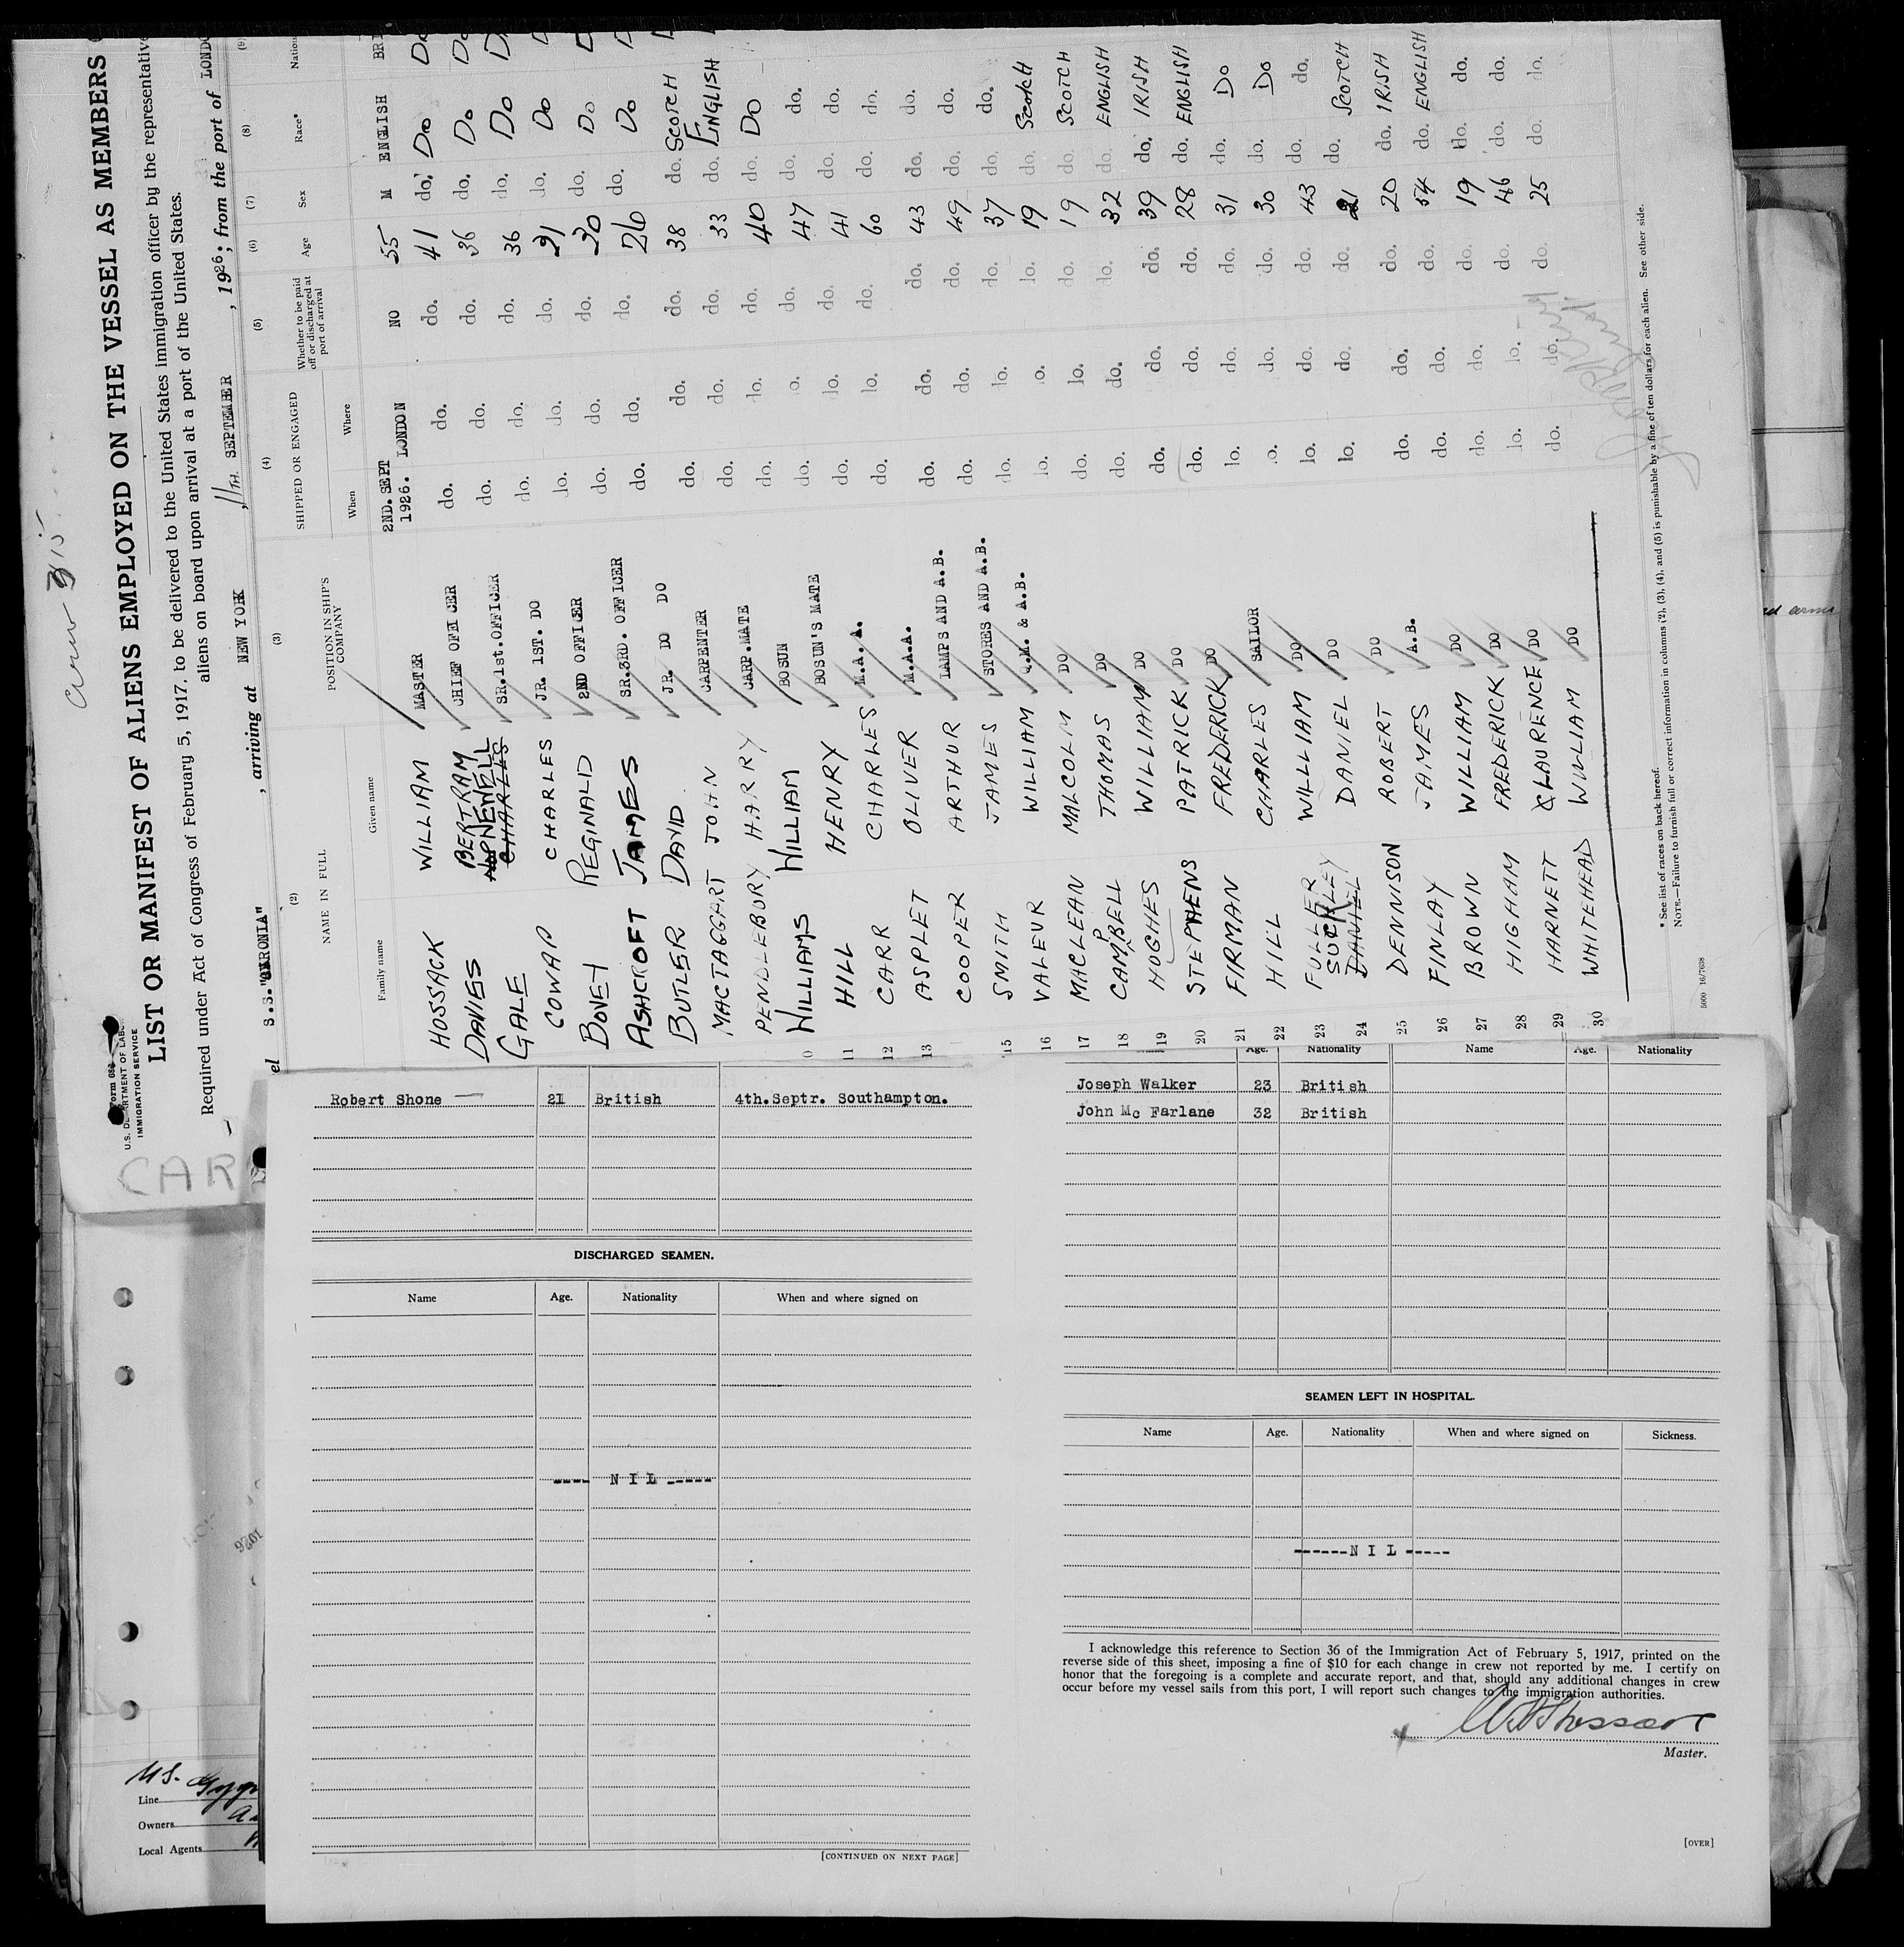 Crew 315
CAR
U.S. DEPARTMENT OF LABOR
IMMIGRATION SERVICE
LIST OR MANIFEST OF ALIENS EMPLOYED ON THE VESSEL AS MEMBERS
Required under Act of Congress of February 5, 1917, to be delivered to the United States immigration officer by the representative
aliens on board upon arrival at a port of the United States.
S.S. "CARONIA" , arriving at NEW YORK , 11TH SEPTEMBER , 1926; from the port of LONDO
(2) (3) (4) (5) (6) (7) (8) (9)
NAME IN FULL POSITION IN SHIP'S COMPANY SHIPPED OR ENGAGED Whether to be paid off or discharged at port of arrival Age Sex Race*
Family name Given name When Where
HOSSACK WILLIAM MASTER 2ND. SEPT 1926. LONDON NO 55 M ENGLISH BRI
DAVIES BERTRAM CHIEF OFFICER do. do. do. 41 do. Do Do
GALE CHARLES SR.1st.OFFICER do. do. do. 36 do. Do Do
COWAP CHARLES JR. 1ST. DO do. do. do. 36 do. Do
BONET REGINALD 2ND OFFICER do. do. do. 31 do. Do
ASHCROFT JAMES SR.3RD. OFFICER do. do. do. 30 do. Do
BUTLER DAVID JR. DO DO do. do. do. 26 do. Do
MACTAGGART JOHN CARPENTER do. do. do. 38 do. SCOTCH
PENDLEBURY HARRY CARP.MATE do. do. do. 33 do. ENGLISH
WILLIAMS WILLIAM BOSUN do. do. do. 40 do. DO
11 HILL HENRY BOSUN'S MATE do. do. do. 47 do. do.
12 CARR CHARLES M.A.A. do. do. do. 41 do. do.
13 ASPLET OLIVER M.A.A. do. do. do. 60 do. do.
COOPER ARTHUR LAMPS AND A.B. do. do. do. 43 do. do.
15 SMITH JAMES STORES AND A.B. do. do. do. 49 do. do.
16 VALEUR WILLIAM Q.M. & A.B. do. do. do. 37 do. do.
17 MACLEAN MALCOLM DO do. do. do. 19 do. Scotch
18 CAMPBELL THOMAS DO do. do. do. 19 do. SCOTCH
19 HUGHES WILLIAM DO do. do. do. 32 do. ENGLISH
20 STEPHENS PATRICK DO do. do. do. 39 do. IRISH
21 FIRMAN FREDERICK DO do. do. do. 28 do. ENGLISH
22 HILL CHARLES SAILOR do. do. do. 31 do. DO
23 FULLER WILLIAM DO do. do. do. 30 do. DO
24 SUCKLEY DANIEL DANIEL DO do. do. do. 43 do. do.
25 DENNISON ROBERT DO do. do. do. 21 do. SCOTCH
26 FINLAY JAMES A.B. do. do. do. 20 do. IRISH
27 BROWN WILLIAM DO do. do. do. 54 do. ENGLISH
28 HIGHAM FREDERICK DO do. do. do. 19 do. do.
29 HARNETT CLAURENCE DO do. do. do. 46 do. do.
30 WHITEHEAD WILLIAM DO do. do. do. 25 do. do.
* See list of races on back hereof.
NOTE.—Failure to furnish full or correct information in columns (2), (3), (4), and (5) is punishable by a fine of ten dollars for each alien. See other side.
5000 16/7638
Robert Shone 21 British 4th.Septr. Southampton.
DISCHARGED SEAMEN.
Name Age. Nationality When and where signed on
---- N I L -----
[CONTINUED ON NEXT PAGE]
Name Age. Nationality Name Age. Nationality
Joseph Walker 23 British
John Mc Farlane 32 British
SEAMEN LEFT IN HOSPITAL.
Name Age. Nationality When and where signed on Sickness.
------N I L -----
I acknowledge this reference to Section 36 of the Immigration Act of February 5, 1917, printed on the
reverse side of this sheet, imposing a fine of $10 for each change in crew not reported by me. I certify on
honor that the foregoing is a complete and accurate report, and that, should any additional changes in crew
occur before my vessel sails from this port, I will report such changes to the immigration authorities.
Master.
[OVER]
Line
Owners
Local Agents